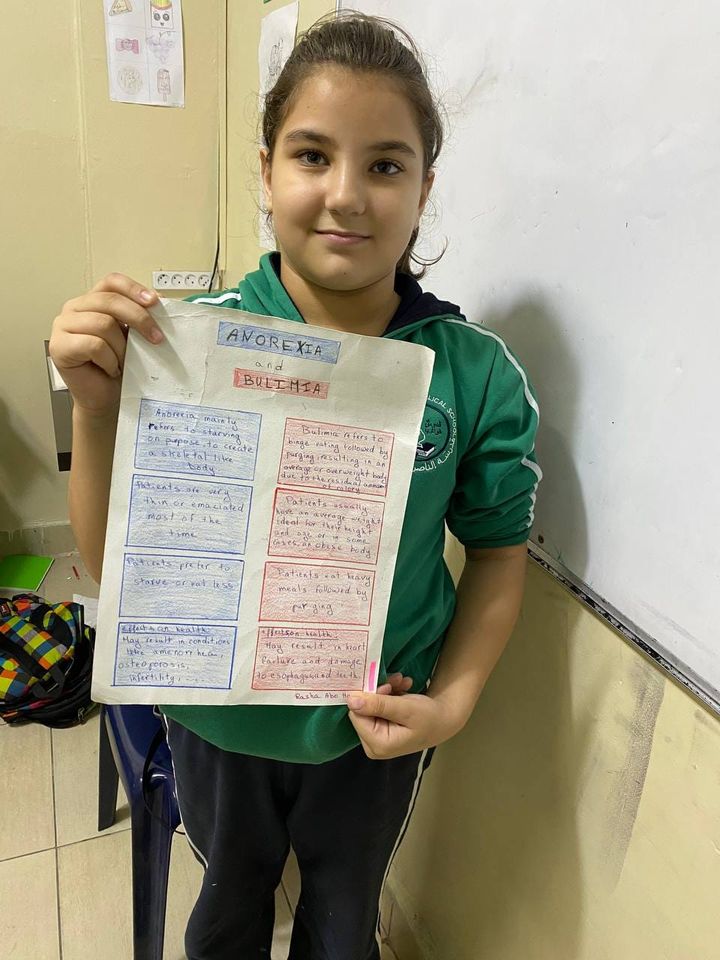 ANOREXIA
and
BULIMIA
Anorexia mainly
refers to starving
on purpose to create
a skeletal like
body
Patients are very
thin or emaciated
most of the
time
Patients prefer to
starve or eat less
effects on health:
May result in conditions
like amenorrhea,
osteoporosis,
infertility, ...
Bulimia refers to
binge eating followed by
purging resulting in an
average or overweight body
due to the residual
of calory
Patients usually
have an average weight
ideal for their height
and age or in some
cases an obese body
Patients eat heavy
meals followed by
purging
effects on health:
May result in heart
failure and damage
to esophagus and teeth.
Rasha Abo
LICAL SCHOOL